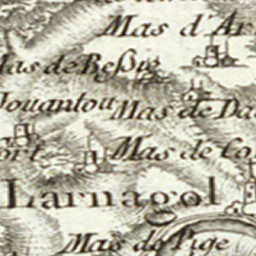 Mas d'Ar
Mas de Reßig
Jouantou
Mas de Da
ort
Mas de Co
Larnagol
Mas de Pige